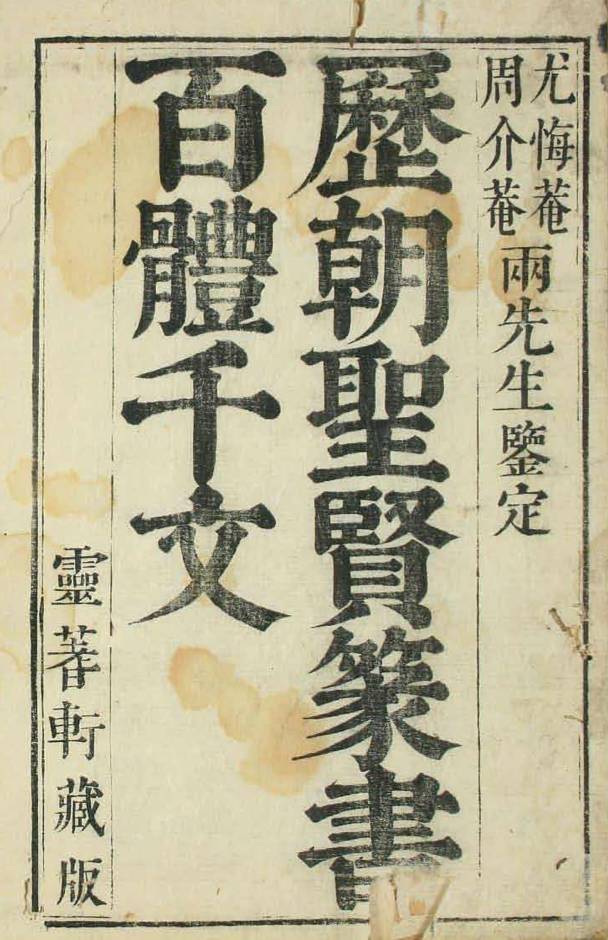 尤悔菴
周介菴
兩先生鑒定
歷朝聖賢篆書
百體千文
靈蓍軒藏版